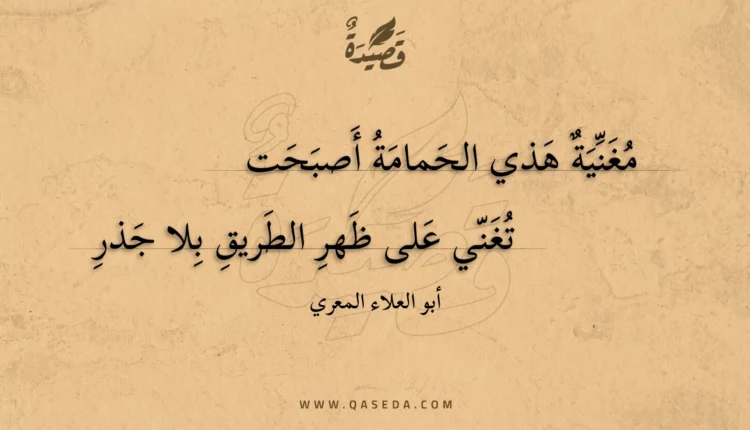 قَصِيدَةٌ
مُغَنِّيَةٌ هَذي الحَمامَةُ أَصبَحَت
تُغَنّي عَلى ظَهرِ الطَريقِ بِلا جَذرِ
أبو العلاء المعري
WWW.QASEDA.COM